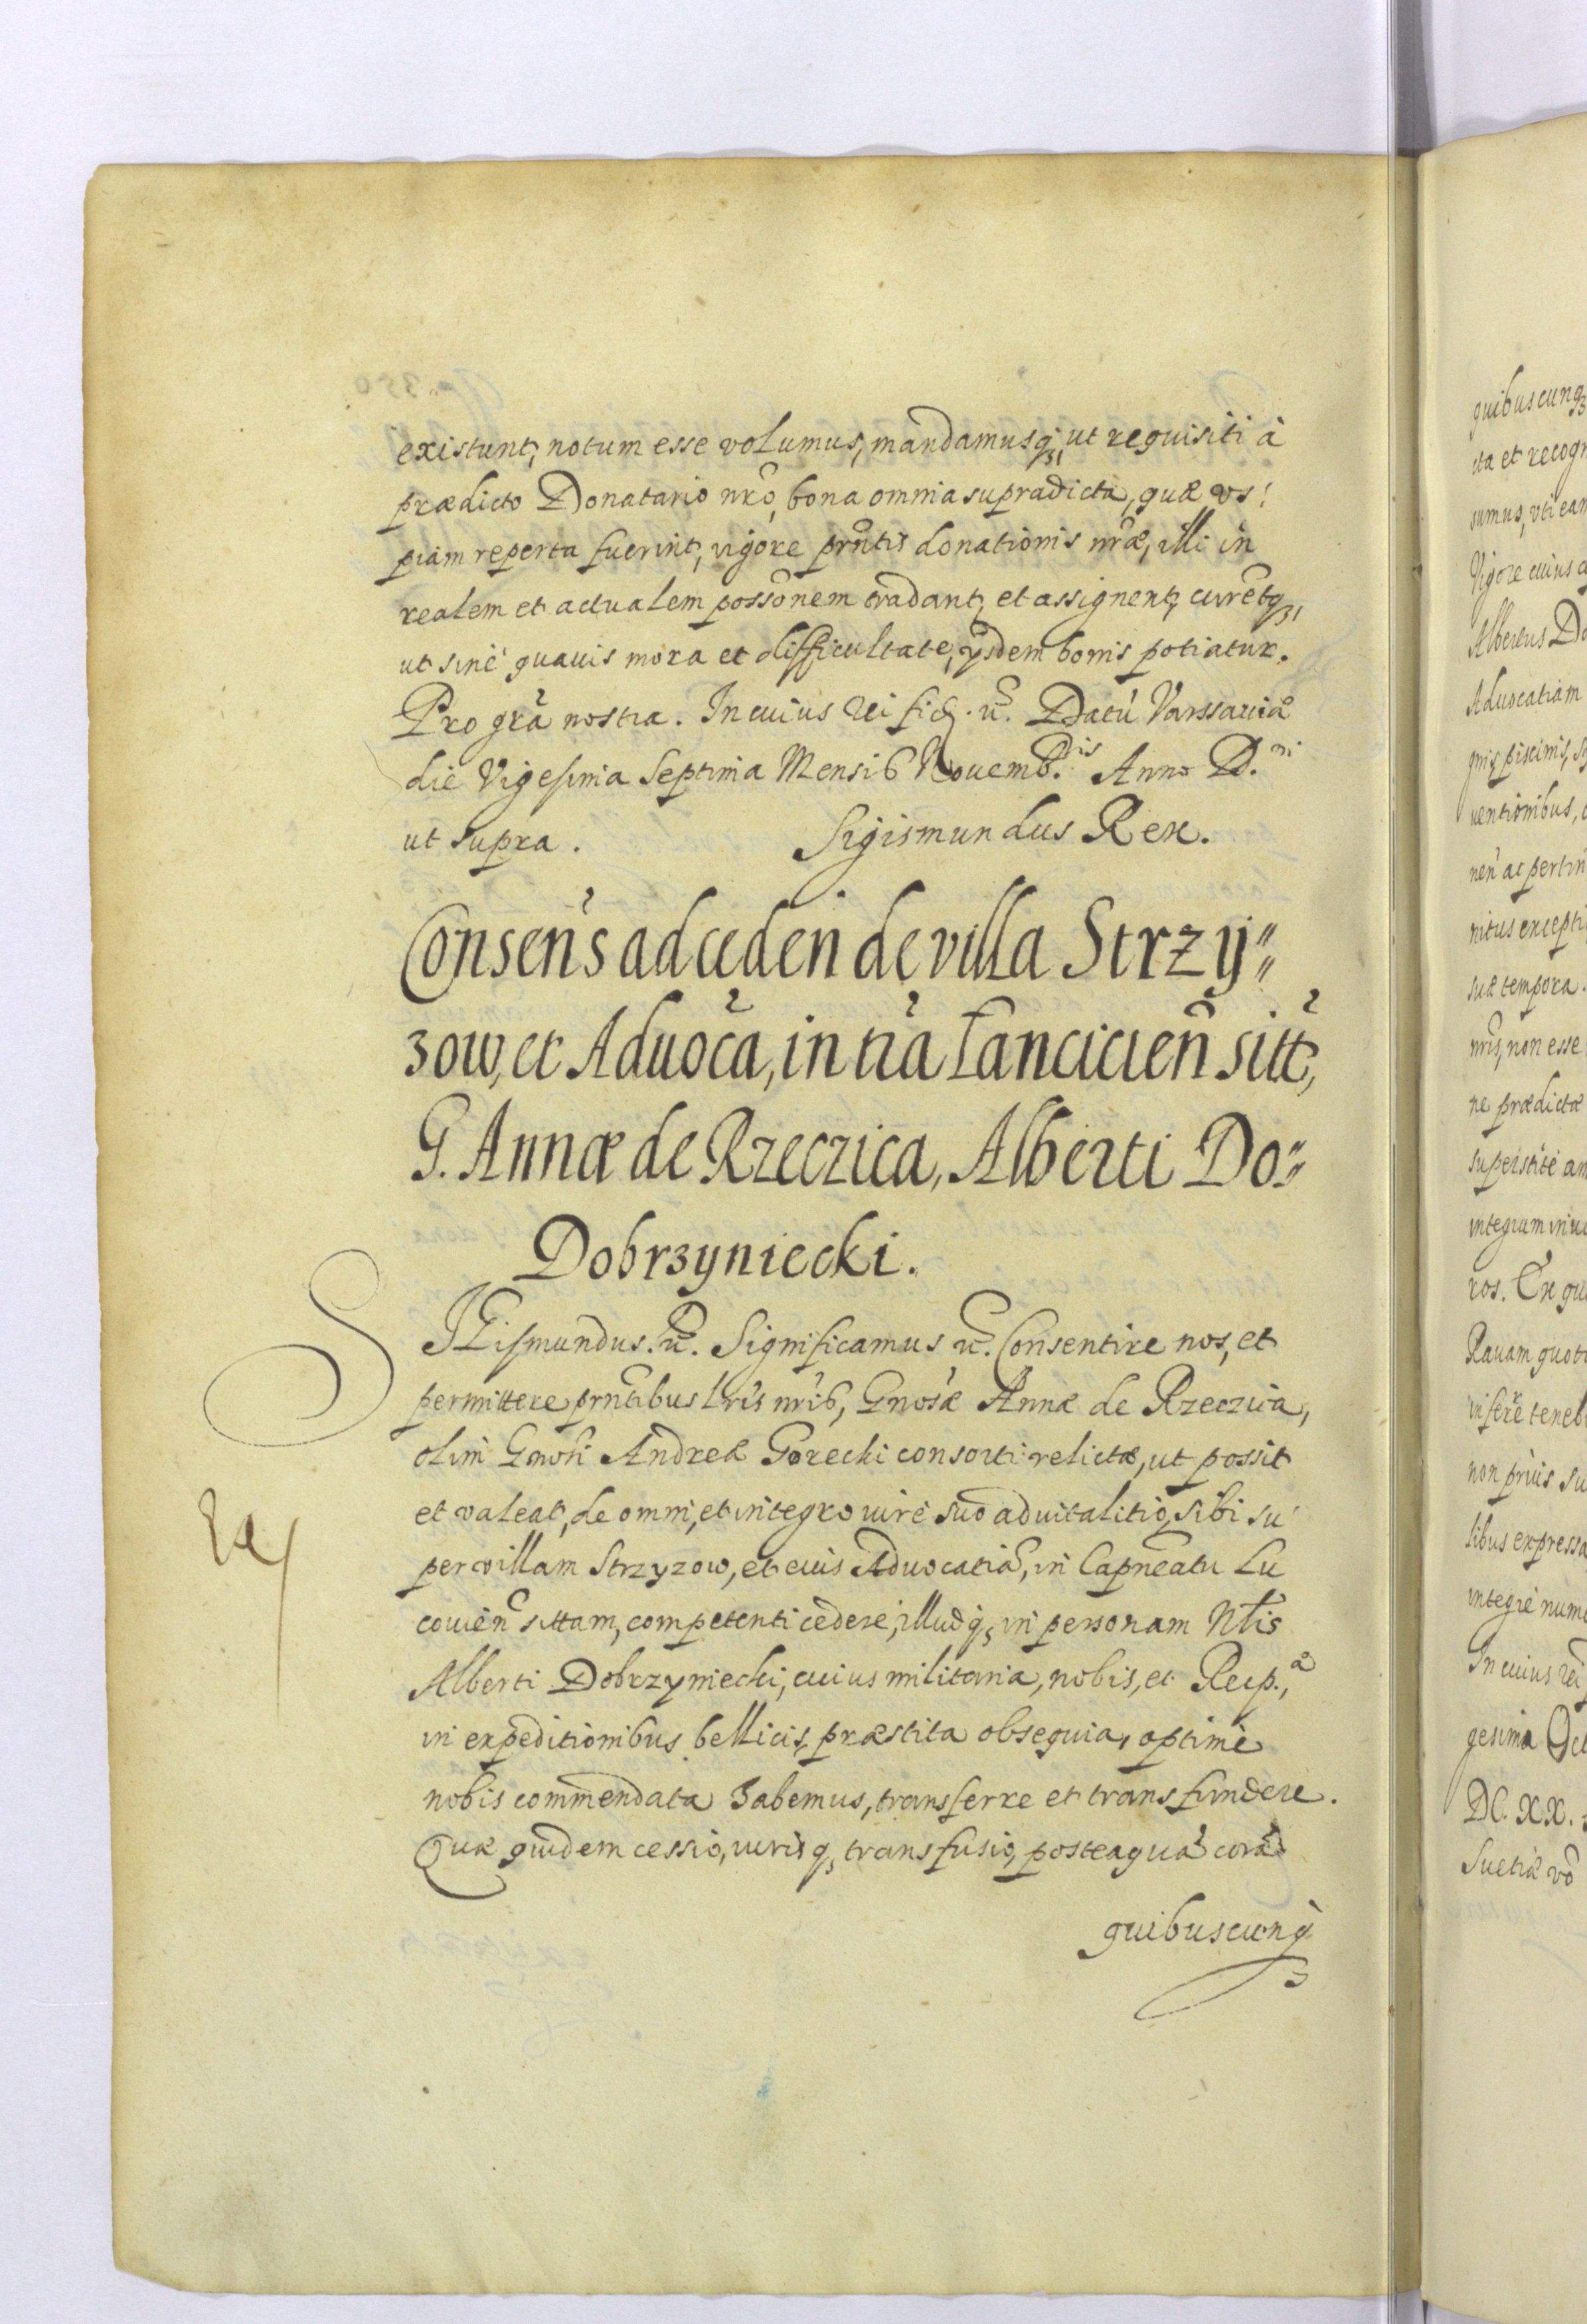 existunt, notum esse volumus, mandamusq3, ut requisiti à
prædicto Donatario nr̃o, bona omnia supradicta, quæ vs:
piam reperta fuerint, vigore prñtis donationis nr̃æ, illi in
realem et actualem possõnem tradant, et assignent, curẽtq3,
ut sinè quauis mora et difficultate, ysdem bonis potiatur.
Pro gr̃a nostra. In cuius rei fid. ũ. Datũ Varssauiæ
die Vigesima Septima Mensis Nouemb.is Anno D.ni
ut supra. Sigismundus Rex.
Consen̄s ad ceden̄ de villa Strzy"
zow, et Aduoc̃a, in tr̃a Lanciciẽn sitt̃,
G. Annæ de Rzeczica, Alberti Do"
Dobrzyniecki.
SIGismundus. ũ. Significamus ũ. Consentire nos, et
permittere prñtibus lr̃is nr̃is, Gnosæ Annæ de Rzeczica,
olim Gnosi Andreæ Gorecki consorti relictæ, ut possit
et valeat, de omni, et integro iure suo aduitalitio, sibi su
per villam Strzyzow, et eius Aduocatiã, in Capnẽatu Lu
couiẽn sittam, competenti cedere, illudq3 in personam Nt̃is
Alberti Dobrzyniecki, cuius militaria, nobis, et Reip.æ
in expeditionibus bellicis, præstita obsequia, optimè
nobis commendata habemus, transferre et transfundere.
Quæ quidem cessio, iurisq3 transfusio, posteaquã corã
quibuscunq3
quibuscunq3
ta et recogn
sumus, vti eam
Vigore cuius
Albertus Do
Aduocatiam
piscinis,
uentionibus,
nen̄ ac pertin
nitus excepti
suæ tempora.
nr̃is, non esse
ne prædictæ
superstite am
integrum
ros.
Rauam quot
inferre teneb
non priùs su
libus expressa
integrè num
In cuius rei
gesima Oct
DC. XX.
Suetiæ vo